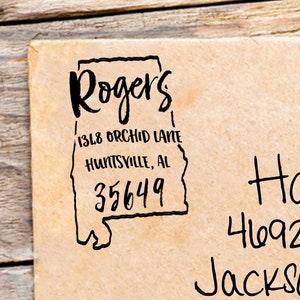 Rogers
1368 ORCHID LANE
HUNTSVILLE, AL
35649
Ho
4692
Jackso